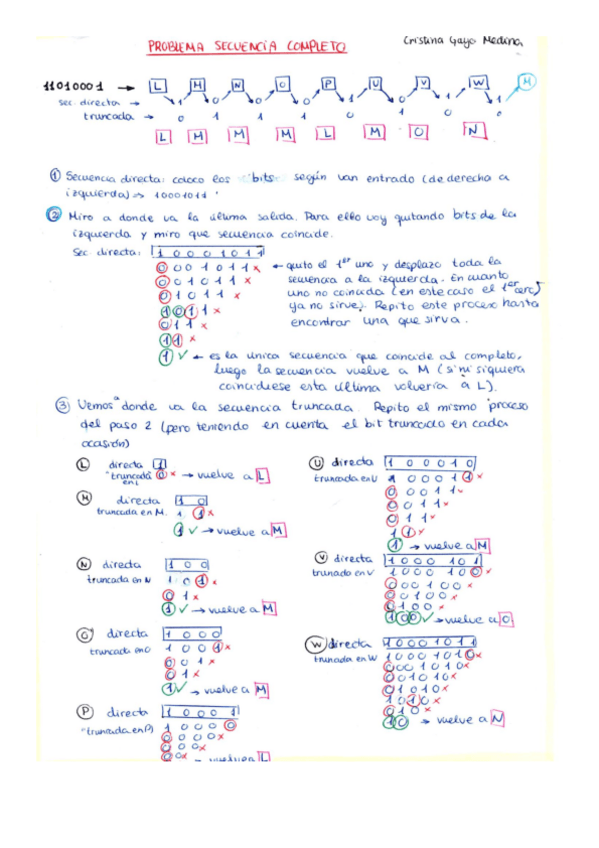 PROBLEMA SECUENCIA COMPLETO
Cristina Gayo Medina
11010001 → L M N O P U V W M
sec. directa → 1 0 0 0 1 0 1 1
truncada → 0 1 1 1 0 1 0 0
L M M M L M O N
① Secuencia directa: coloco los bits según van entrado (de derecha a
izquierda) → 10001011
② Miro a donde va la última salida. Para ello voy quitando bits de la
izquierda y miro que secuencia coincide.
Sec directa: 1 0 0 0 1 0 1 1
0 0 0 1 0 1 1 × ← quito el 1er uno y desplazo toda la
0 0 1 0 1 1 × secuencia a la izquierda. En cuanto
0 1 0 1 1 × uno no coincida (en este caso el 1er cero)
1 0 1 1 × ya no sirve). Repito este proceso hasta
0 1 1 × encontrar una que sirva.
1 1 ×
1 ✓ ← es la única secuencia que coincide al completo,
luego la secuencia vuelve a M (si ni siquiera
coincidiese esta última volvería a L).
③ Vemos donde va la secuencia truncada. Repito el mismo proceso
del paso 2 (pero teniendo en cuenta el bit truncado en cada
ocasión)
Ⓛ directa 1
truncada en L 0 × → vuelve a L
Ⓜ directa 1 0
truncada en M. 1 1 ×
1 ✓ → vuelve a M
Ⓝ directa 1 0 0
truncada en N 1 0 1 ×
0 1 ×
1 ✓ → vuelve a M
Ⓞ directa 1 0 0 0
truncada en O 1 0 0 1 ×
0 0 1 ×
0 1 ×
1 ✓ → vuelve a M
Ⓟ directa 1 0 0 0 1
"truncada en P) 1 0 0 0 0
0 0 0 0 ×
0 0 0 ×
0 0 × → vuelve a L
Ⓤ directa 1 0 0 0 1 0
truncada en U 1 0 0 0 1 1 ×
0 0 0 1 1 ×
0 0 1 1 ×
0 1 1 ×
1 1 ×
1 → vuelve a M
Ⓥ directa 1 0 0 0 1 0 1
trunado en V 1 0 0 0 1 0 0 ×
0 0 0 1 0 0 ×
0 0 1 0 0 ×
0 1 0 0 ×
1 0 0 ✓ → vuelve a O
Ⓦ directa 1 0 0 0 1 0 1 1
truncada en W 1 0 0 0 1 0 1 0 ×
0 0 0 1 0 1 0 ×
0 0 1 0 1 0 ×
0 1 0 1 0 ×
1 0 1 0 ×
0 1 0 ×
1 0 → vuelve a N